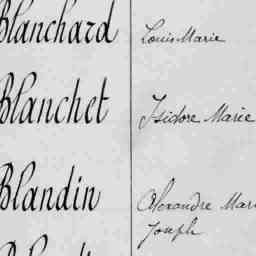 Blanchard Louis Marie
Blanchet Isidore Marie
Blandin Alexandre Mari
Joseph